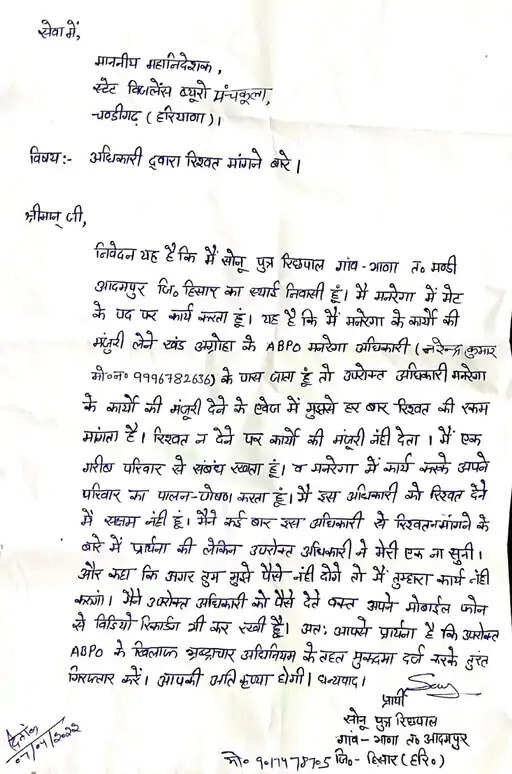 सेवा में,
माननीय महानिदेशक,
स्टेट विजलेंस ब्यूरो पंचकूला,
चण्डीगढ़ (हरियाणा)।
विषय:- अधिकारी द्वारा रिश्वत मांगने बारे।
श्रीमान् जी,
निवेदन यह है कि मैं सोनू पुत्र रिछपाल गांव - भाणा त॰ मण्डी
आदमपुर जि॰ हिसार का स्थाई निवासी हूं। मैं मनरेगा में मेट
के पद पर कार्य करता हूं। यह है कि मैं मनरेगा के कार्यो की
मंजुरी लेने खंड अग्रोहा के ABPO मनरेगा अधिकारी (नरेन्द्र कुमार
मो॰न॰ 9996782636) के पास जाता हूं तो उपरोक्त अधिकारी मनरेगा
के कार्यो की मंजूरी देने के एवेज में मुझसे हर बार रिश्वत की रकम
मांगता है। रिश्वत न देने पर कार्यो की मंजूरी नंही देता। मैं एक
गरीब परिवार से संबंध रखता हूं। व मनरेगा में कार्य करके अपने
परिवार का पालन-पोषण करता हूं। मैं इस अधिकारी को रिश्वत देने
में सक्षम नंही हूं। मैंने कई बार इस अधिकारी से रिश्वत न मांगने के
बारे में प्रार्थना की लेकिन उपरोक्त अधिकारी ने मेरी एक ना सुनी।
और कहा कि अगर तुम मुझे पैसे नंही दोगे तो मैं तुम्हारा कार्य नंही
करूंगा। मैंने उपरोक्त अधिकारी को पैसे देते वक्त अपने मोबाईल फोन
से विडियो रिकार्डिंग भी कर रखी है। अतः आपसे प्रार्थना है कि उपरोक्त
ABPO के खिलाफ भ्रष्टाचार अधिनियम के तहत मुकदमा दर्ज करके तुरंत
गिरफ्तार करें। आपकी अति कृप्या होगी। धन्यवाद।
प्रार्थी
सोनू पुत्र रिछपाल
गांव - भाणा त॰ आदमपुर
जि॰ - हिसार (हरि॰)
मो॰ 9017478705
दिनांक
07/04/2022